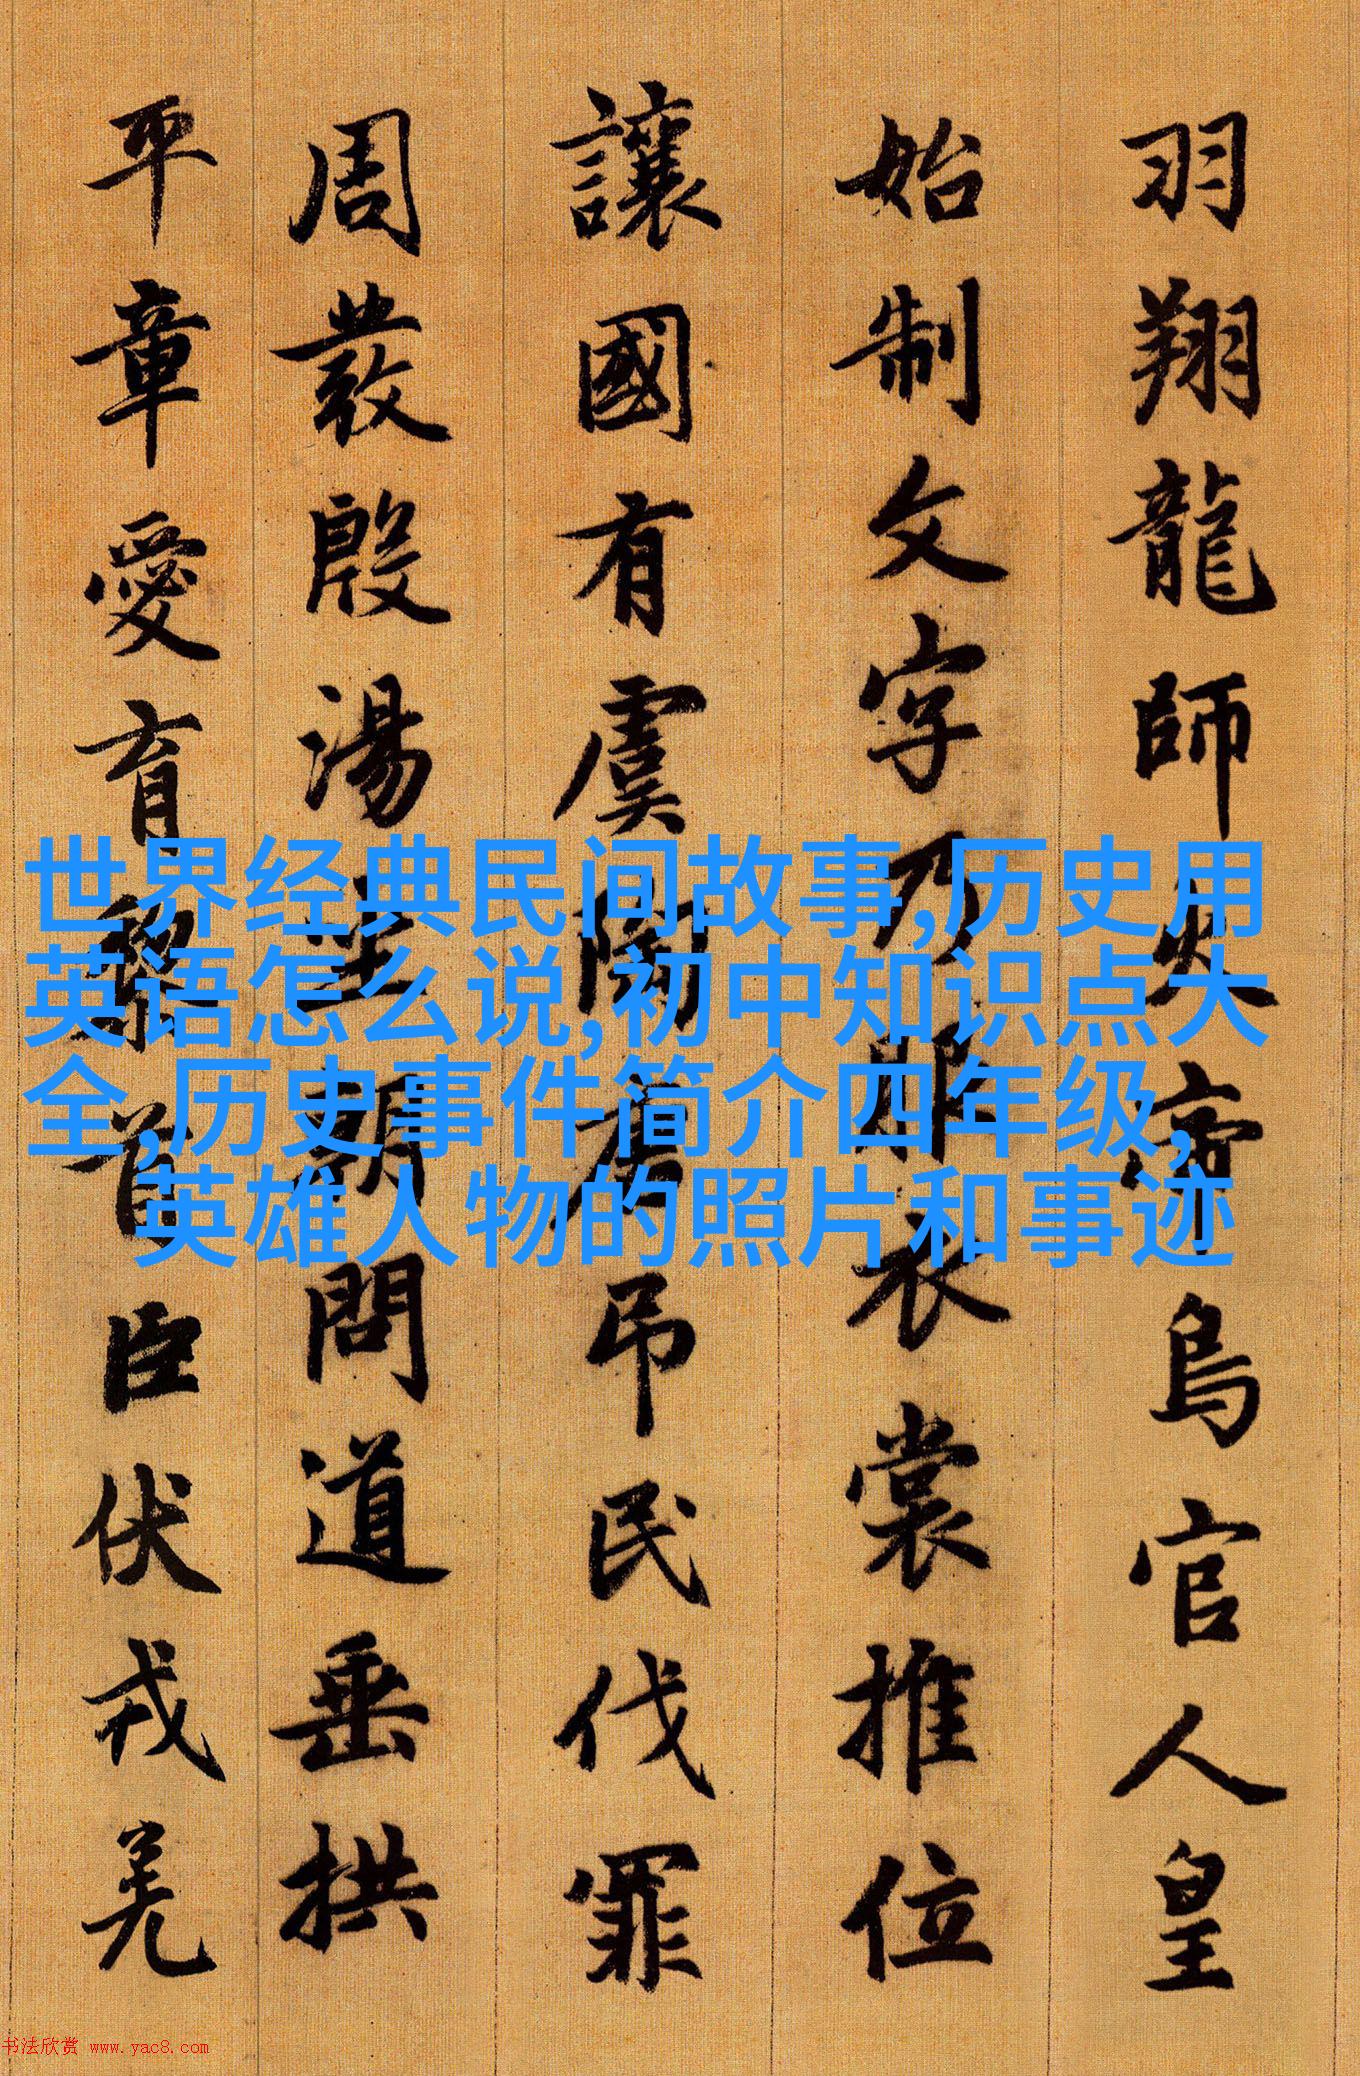 羽翔龍師火帝鳥官人皇
始制文字乃服衣裳推位
讓國有虞陶唐吊民伐罪
周發殷湯坐朝問道垂拱
平章愛育黎首臣伏戎羌
世界经典民间故事,历史用
英语怎么说,初中知识点大
全,历史事件简介四年级,
英雄人物的照片和事迹
书法欣赏 www.yac8.com